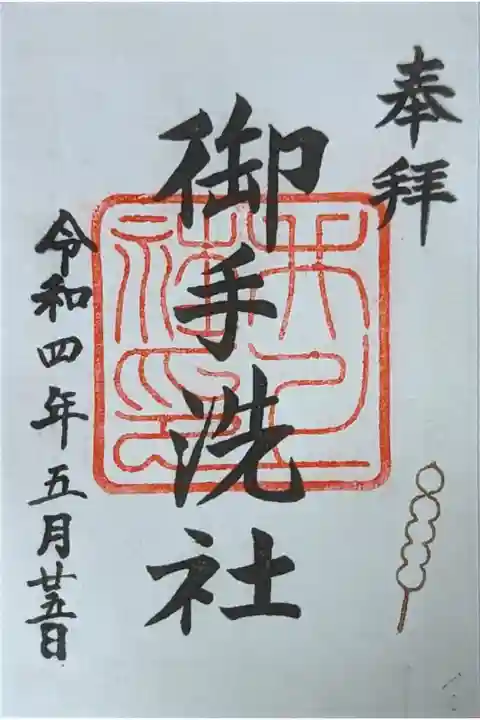 奉拝
御手洗社
令和四年五月廿五日